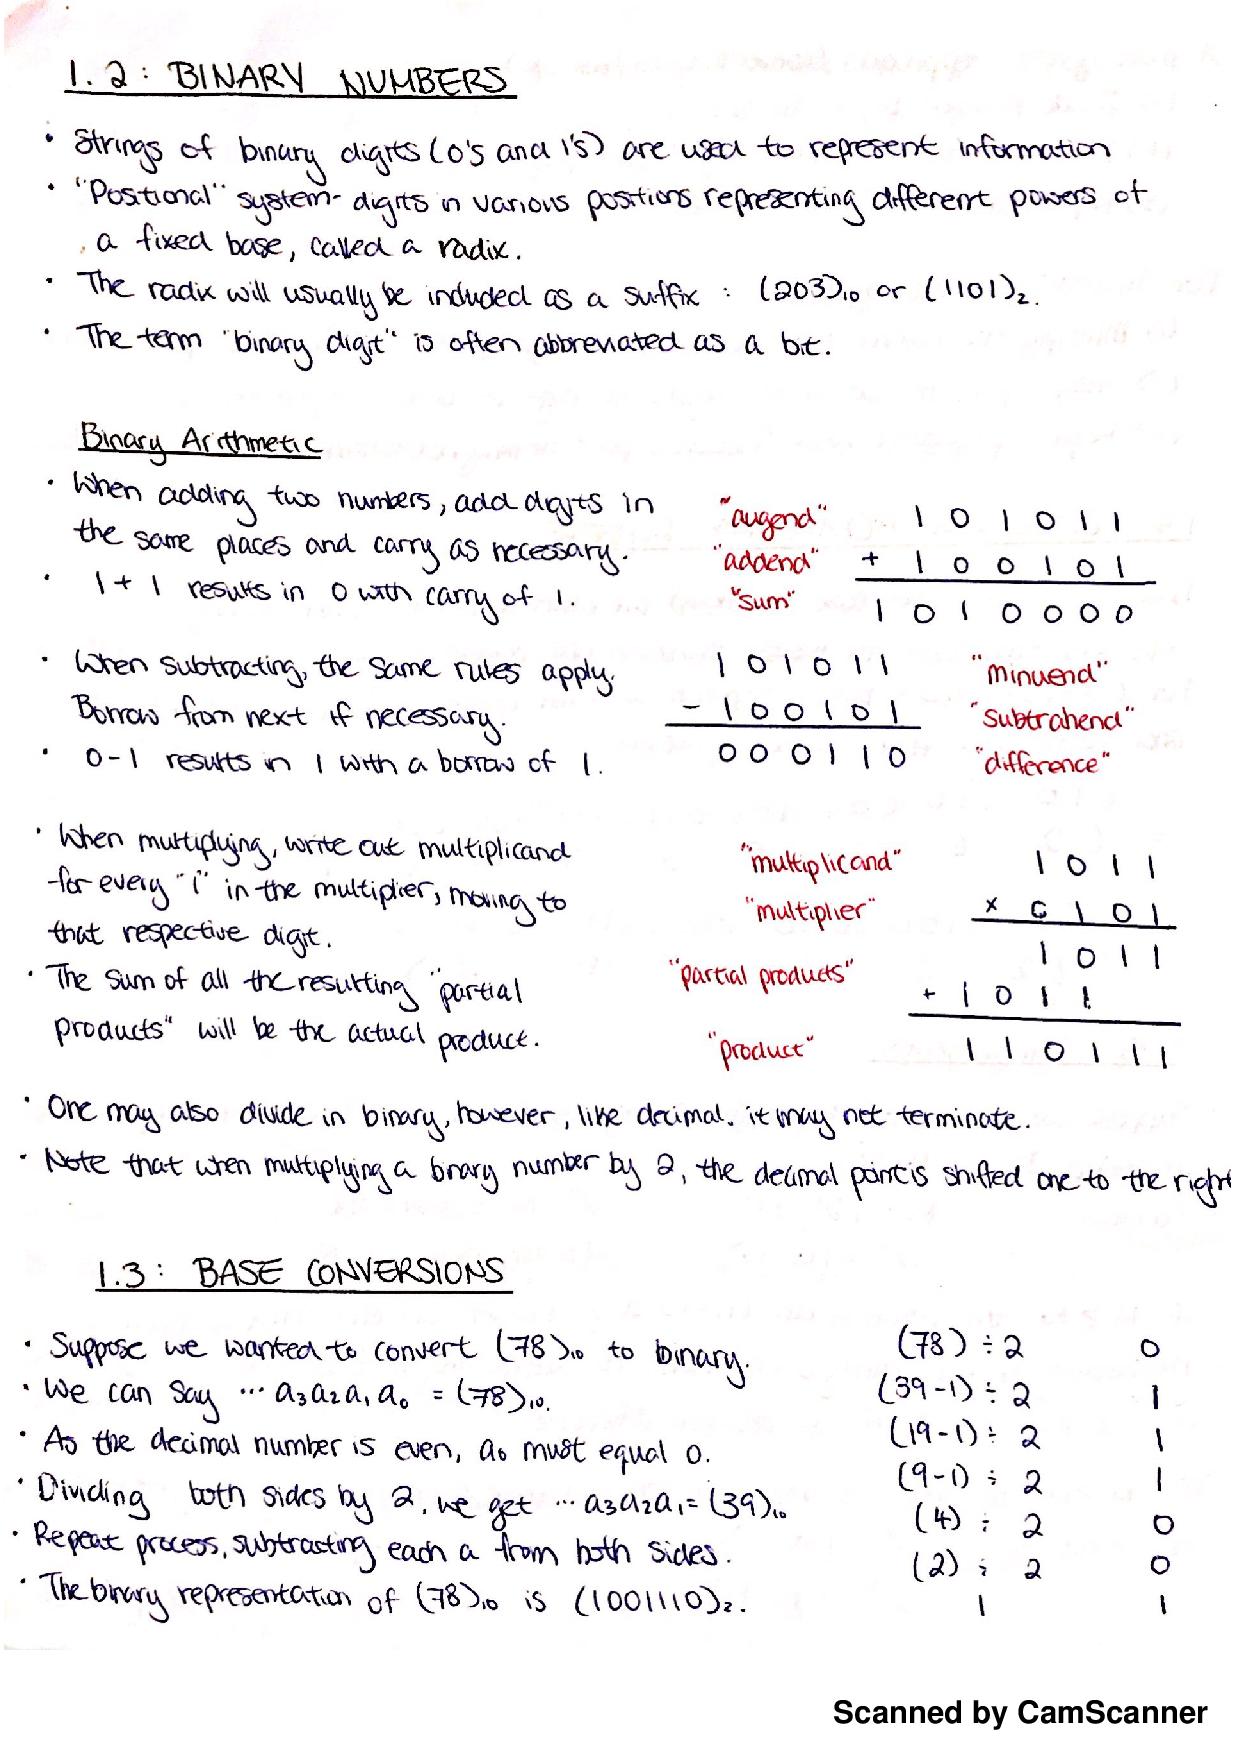 1.2: BINARY NUMBERS
· Strings of binary digits (0's and 1's) are used to represent information
· "Positional" system- digits in various positions representing different powers of
a fixed base, called a radix.
· The radix will usually be included as a suffix : (203)₁₀ or (1101)₂.
· The term "binary digit" is often abbreviated as a bit.
Binary Arithmetic
· When adding two numbers, add digits in
the same places and carry as necessary.
· 1 + 1 results in 0 with carry of 1.
"augend" 1 0 1 0 1 1
"addend" + 1 0 0 1 0 1
"sum" 1 0 1 0 0 0 0
· When subtracting, the same rules apply.
Borrow from next if necessary.
· 0-1 results in 1 with a borrow of 1.
1 0 1 0 1 1 "minuend"
- 1 0 0 1 0 1 "subtrahend"
0 0 0 1 1 0 "difference"
· When multiplying, write out multiplicand
for every "1" in the multiplier, moving to
that respective digit.
· The sum of all the resulting "partial
products" will be the actual product.
"multiplicand" 1 0 1 1
"multiplier" x 0 1 0 1
"partial products" 1 0 1 1
+ 1 0 1 1
"product" 1 1 0 1 1 1
· One may also divide in binary, however, like decimal. it may not terminate.
· Note that when multiplying a binary number by 2, the decimal point is shifted one to the right
1.3: BASE CONVERSIONS
· Suppose we wanted to convert (78)₁₀ to binary.
· We can say ... a₃a₂a₁a₀ = (78)₁₀.
· As the decimal number is even, a₀ must equal 0.
· Dividing both sides by 2, we get ... a₃a₂a₁ = (39)₁₀
· Repeat process, subtracting each a from both sides.
· The binary representation of (78)₁₀ is (1001110)₂.
(78) ÷ 2 0
(39-1) ÷ 2 1
(19-1) ÷ 2 1
(9-1) ÷ 2 1
(4) ÷ 2 0
(2) ÷ 2 0
1 1
Scanned by CamScanner